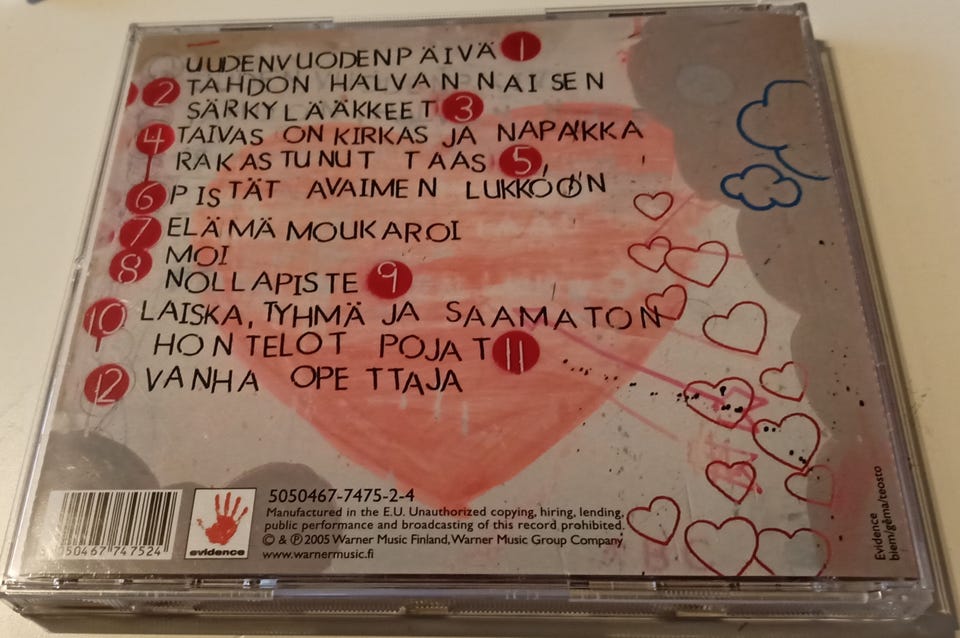 UUDENVUODENPÄIVÄ 1
2 TAHDON HALVAN NAISEN
SÄRKYLÄÄKKEET 3
4 TAIVAS ON KIRKAS JA NAPAKKA
RAKASTUNUT TAAS 5
6 PISTÄT AVAIMEN LUKKOON
7 ELÄMÄ MOUKAROI
8 MOI
NOLLAPISTE 9
10 LAISKA, TYHMÄ JA SAAMATON
HONTELOT POJAT 11
12 VANHA OPETTAJA
5050467-7475-2-4
Manufactured in the E.U. Unauthorized copying, hiring, lending,
public performance and broadcasting of this record prohibited.
© & ℗ 2005 Warner Music Finland, Warner Music Group Company
www.warnermusic.fi
evidence
50467 747524
Evidence
biem/gema/teosto